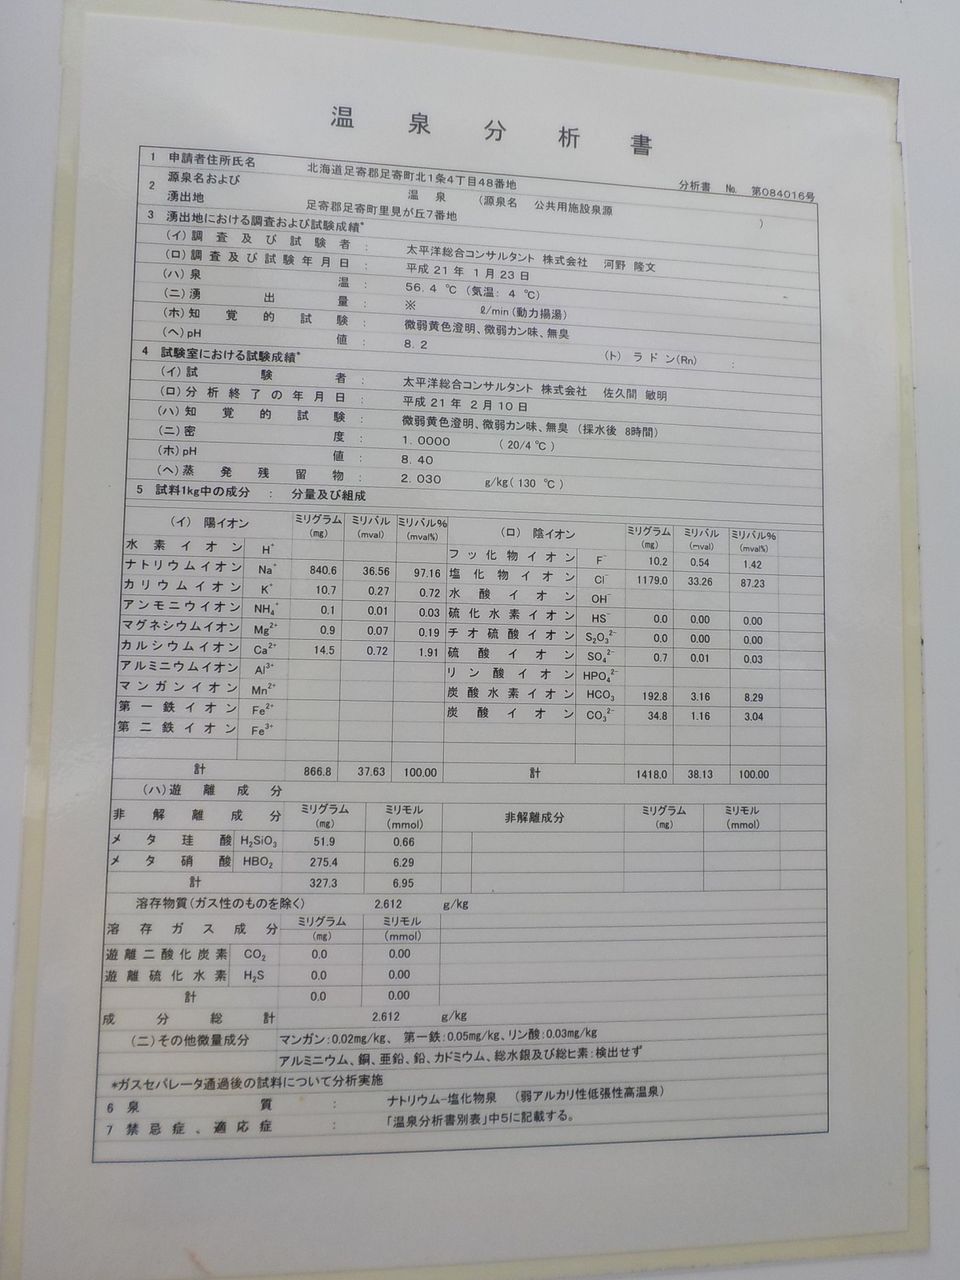 温泉分析書
1 申請者住所氏名 北海道足寄郡足寄町北1条4丁目48番地 分析書 No. 第084016号
2 源泉名および 温泉 (源泉名 公共用施設泉源 )
湧出地 足寄郡足寄町里見が丘7番地
3 湧出地における調査および試験成績*
(イ)調査及び試験者 : 太平洋総合コンサルタント 株式会社 河野 隆文
(ロ)調査及び試験年月日 : 平成21年 1月23日
(ハ)泉温 : 56.4 ℃ (気温: 4 ℃)
(ニ)湧出量 : ※ ℓ/min(動力揚湯)
(ホ)知覚的試験 : 微弱黄色澄明、微弱カン味、無臭
(ヘ)pH値 : 8.2 (ト) ラドン(Rn) :
4 試験室における試験成績*
(イ)試験者 : 太平洋総合コンサルタント 株式会社 佐久間 敏明
(ロ)分析終了の年月日 : 平成21年 2月10日
(ハ)知覚的試験 : 微弱黄色澄明、微弱カン味、無臭 (採水後 8時間)
(ニ)密度 : 1.0000 (20/4℃)
(ホ)pH値 : 8.40
(ヘ)蒸発残留物 : 2.030 g/kg(130 ℃)
5 試料1kg中の成分 : 分量及び組成
(イ) 陽イオン ミリグラム(mg) ミリバル(mval) ミリバル%(mval%) (ロ) 陰イオン ミリグラム(mg) ミリバル(mval) ミリバル%(mval%)
水素イオン H⁺ フッ化物イオン F⁻ 10.2 0.54 1.42
ナトリウムイオン Na⁺ 840.6 36.56 97.16 塩化物イオン Cl⁻ 1179.0 33.26 87.23
カリウムイオン K⁺ 10.7 0.27 0.72 水酸イオン OH⁻
アンモニウイオン NH₄⁺ 0.1 0.01 0.03 硫化水素イオン HS⁻ 0.0 0.00 0.00
マグネシウムイオン Mg²⁺ 0.9 0.07 0.19 チオ硫酸イオン S₂O₃²⁻ 0.0 0.00 0.00
カルシウムイオン Ca²⁺ 14.5 0.72 1.91 硫酸イオン SO₄²⁻ 0.7 0.01 0.03
アルミニウムイオン Al³⁺ リン酸イオン HPO₄²⁻
マンガンイオン Mn²⁺ 炭酸水素イオン HCO₃ 192.8 3.16 8.29
第一鉄イオン Fe²⁺ 炭酸イオン CO₃²⁻ 34.8 1.16 3.04
第二鉄イオン Fe³⁺
計 866.8 37.63 100.00 計 1418.0 38.13 100.00
(ハ)遊離成分
非解離成分 ミリグラム(mg) ミリモル(mmol) 非解離成分 ミリグラム(mg) ミリモル(mmol)
メタ珪酸 H₂SiO₃ 51.9 0.66
メタ硝酸 HBO₂ 275.4 6.29
計 327.3 6.95
溶存物質(ガス性のものを除く) 2.612 g/kg
溶存ガス成分 ミリグラム(mg) ミリモル(mmol)
遊離二酸化炭素 CO₂ 0.0 0.00
遊離硫化水素 H₂S 0.0 0.00
計 0.0 0.00
成分総計 2.612 g/kg
(ニ)その他微量成分 マンガン:0.02mg/kg、 第一鉄:0.05mg/kg、リン酸:0.03mg/kg
アルミニウム、銅、亜鉛、鉛、カドミウム、総水銀及び総ヒ素:検出せず
*ガスセパレータ通過後の試料について分析実施
6 泉質 : ナトリウム-塩化物泉 (弱アルカリ性低張性高温泉)
7 禁忌症、適応症 : 「温泉分析書別表」中5に記載する。